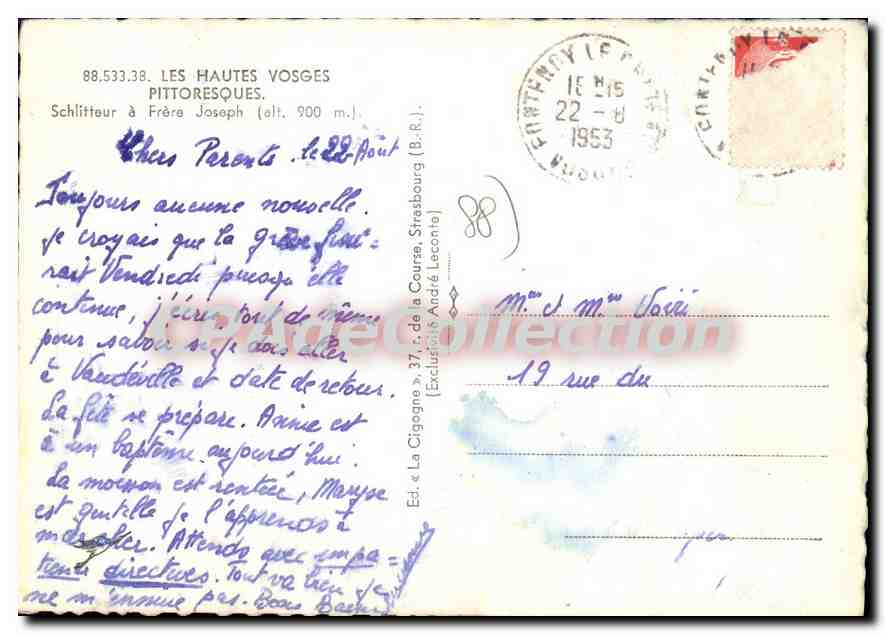 88,533.38. LES HAUTES VOSGES
PITTORESQUES.
Schlitteur à Frère Joseph (alt. 900 m.).
Chers Parents. le 22 Août
Toujours aucune nouvelle.
Je croyais que la grève fini-
rait Vendredi puisqu'elle
continue, j'écris tout de même
pour savoir si je dois aller
à Vaudéville et date de retour.
La fête se prépare. Annie est
à un baptême aujourd'hui.
La moisson est rentrée, Maryse
est gentille je l'apprends à
marcher. Attends avec impa-
tience directives. Tout va bien je
ne m'ennuie pas. Bons Baisers
Ed. « La Cigogne », 37, r. de la Course, Strasbourg (B.-R.).
(Exclusivité André Leconte)
FONTENOY LE
15
22 - 8
1953
FONTENOY
88
Mr et Mme Voiri
19 rue du
CPADeCollection